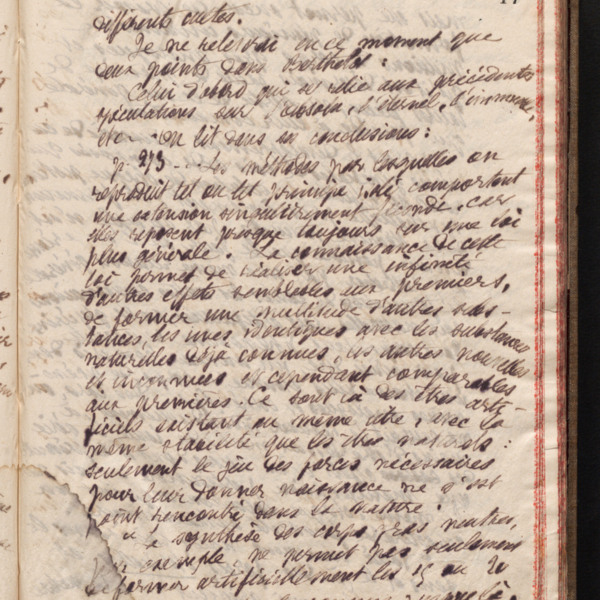 différents cultes.
Je ne relèverai en ce moment que
deux points dans Berthelot :
Celui d'abord qui se relie aux précédentes
spéculations sur l'absolu, l'éternel, l'immense,
etc. On lit dans ses conclusions :
p. 273 ... Les méthodes par lesquelles on
reproduit tel ou tel principe isolé comportent
une extension singulièrement féconde, car
elles reposent presque toujours sur une loi
plus générale. La connaissance de cette
loi permet de réaliser une infinité
d'autres effets semblables aux premiers,
de former une multitude d'autres subs-
tances, les unes identiques avec les substances
naturelles déjà connues, les autres nouvelles
et inconnues et cependant comparables
aux premières. Ce sont là des êtres arti-
ficiels existant au même titre, avec la
même stabilité que les êtres naturels :
seulement le jeu des forces nécessaires
pour leur donner naissance ne s'est
point rencontré dans la nature.
" La synthèse des corps gras neutres,
par exemple, ne permet pas seulement
de former artificiellement les 15 ou 20